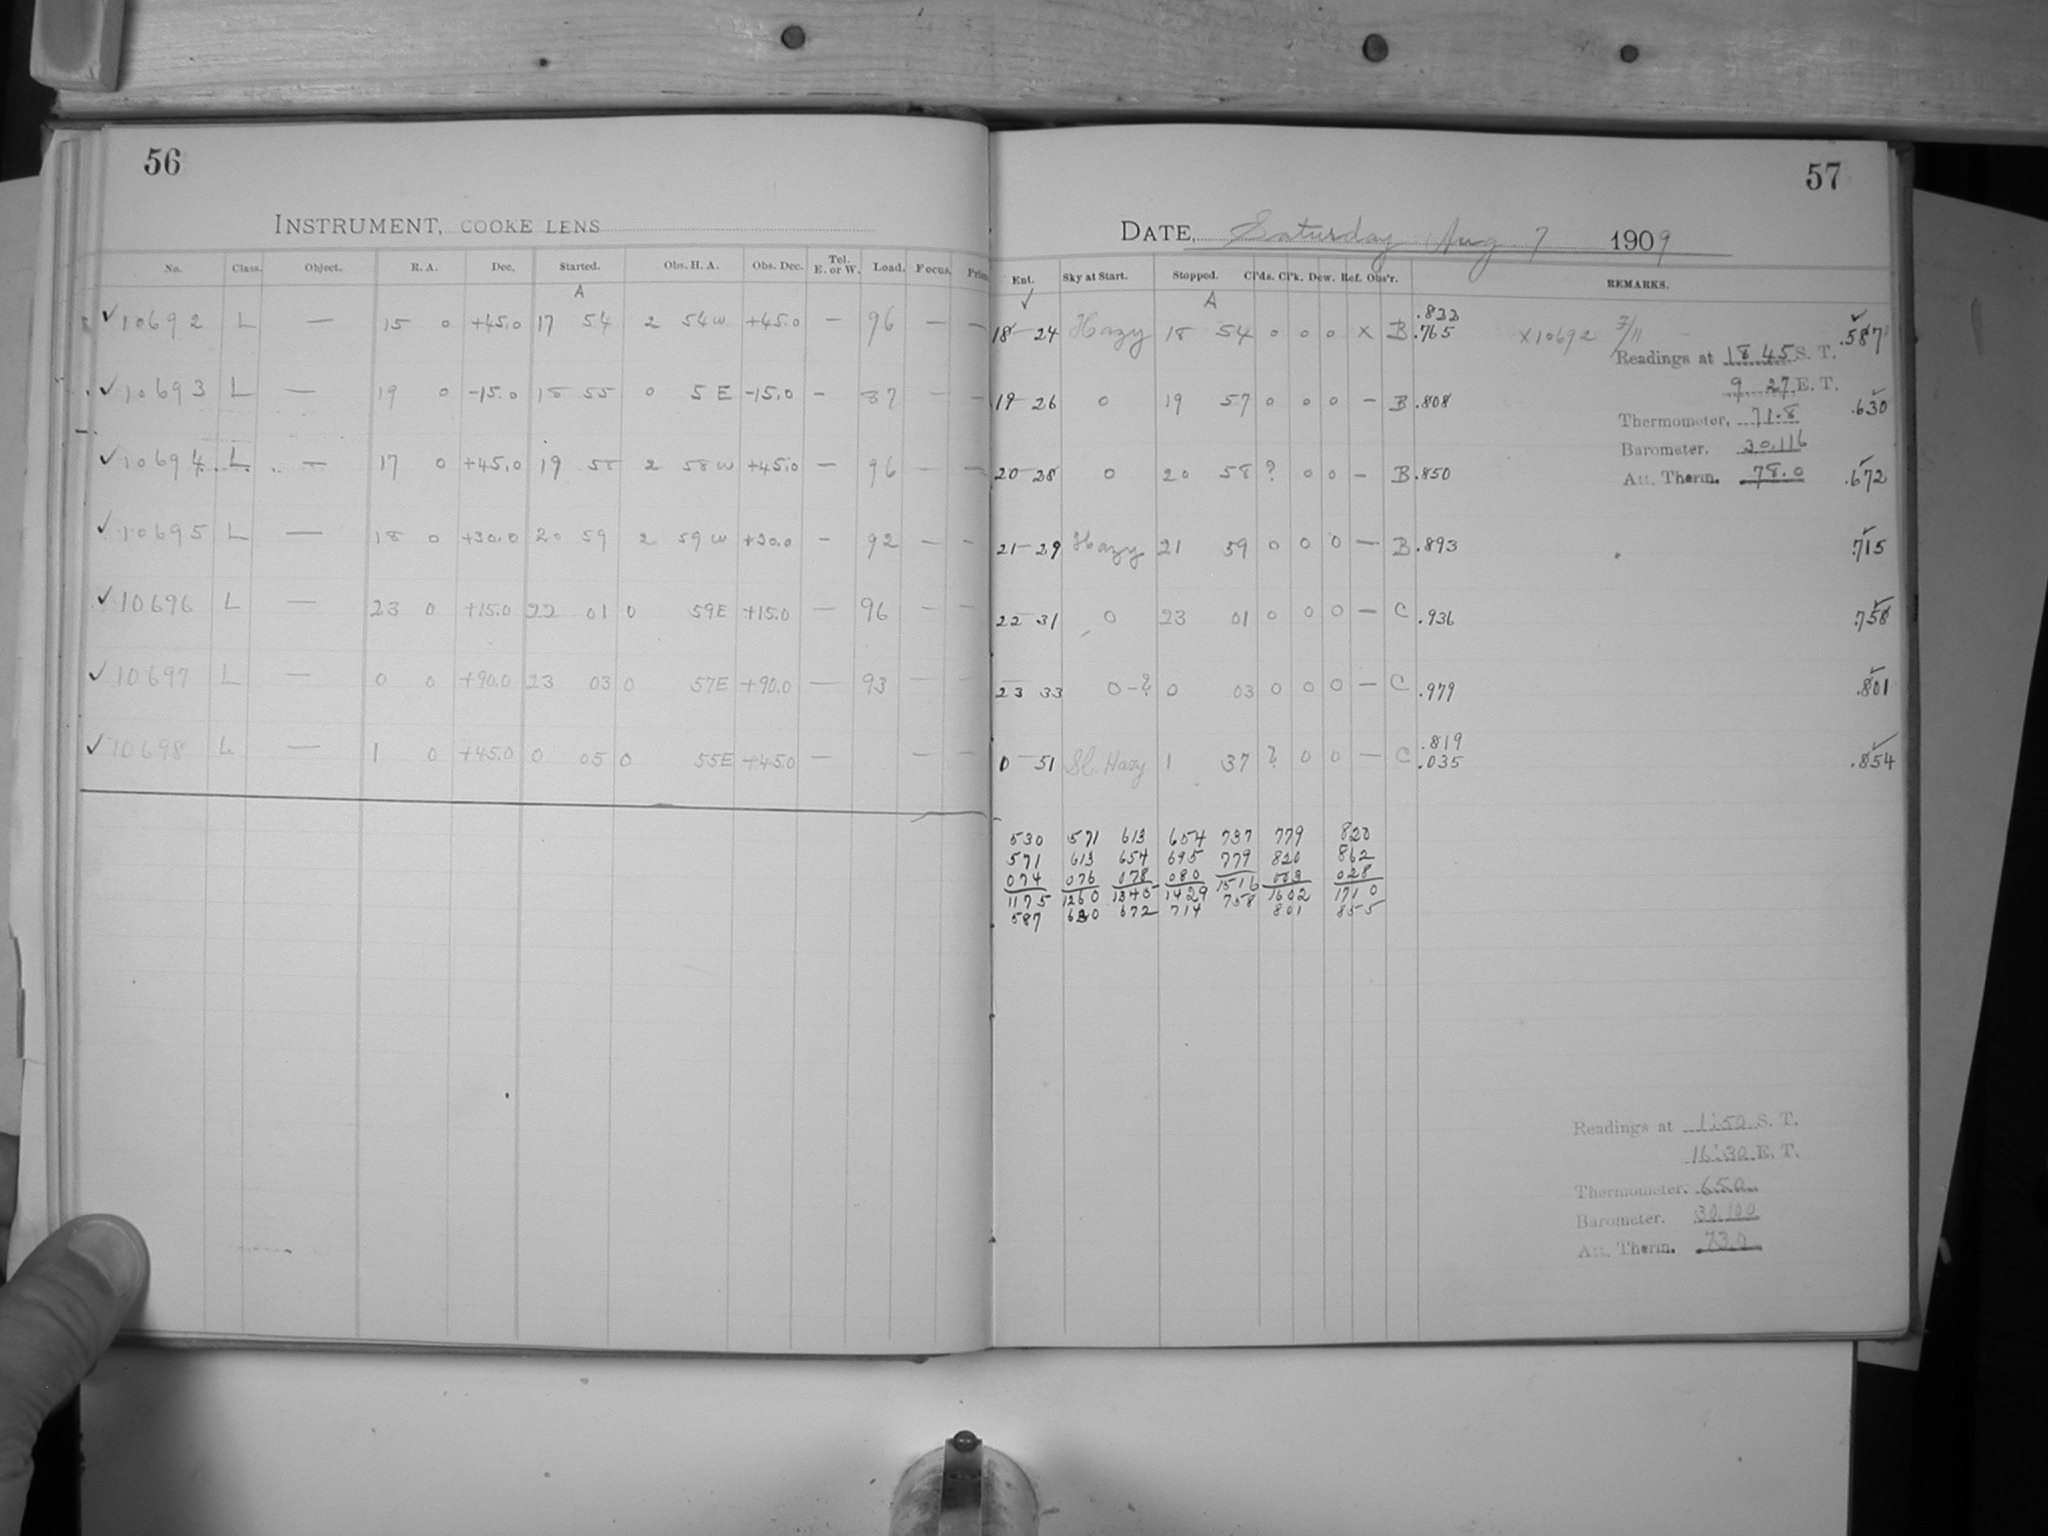 56
INSTRUMENT, COOKE LENS
No. Class. Object. R. A. Dec. Started. Obs. H. A. Obs. Dec. Tel. E. or W. Load. Focus.
A
✓ 10692 L — 15 0 +45.0 17 54 2 54 W +45.0 — 96 — —
✓ 10693 L — 19 0 -15.0 18 55 0 5 E -15.0 — 87 — —
✓ 10694 L — 17 0 +45.0 19 58 2 58 W +45.0 — 96 — —
✓ 10695 L — 18 0 +30.0 20 59 2 59 W +30.0 — 92 — —
✓ 10696 L — 23 0 +15.0 22 01 0 59 E +15.0 — 96 — —
✓ 10697 L — 0 0 +90.0 23 03 0 57 E +90.0 — 93 — —
✓ 10698 L — 1 0 +45.0 0 05 0 55 E +45.0 — — —
57
DATE, Saturday Aug 7 1909
Ent. Sky at Start. Stopped. Cl'ds. Cl'k. Dew. Ref. Obs'r. REMARKS.
✓ A
18 24 Hazy 18 54 0 0 0 X B .765 X 10692 .587
Readings at 18 45 S. T.
9 27 E. T.
19 26 0 19 57 0 0 0 — B .808 .630
Thermometer, 71.8
Barometer. 30.116
20 28 0 20 58 ? 0 0 — B .850 .672
Att. Therm. 78.0
21 29 Hazy 21 59 0 0 0 — B .893 .715
22 31 0 23 01 0 0 0 — C .936 .758
23 33 0-? 0 03 0 0 0 — C .979 .801
.819
0 51 Sl. Hazy 1 37 ? 0 0 — C .035 .854
530 571 613 654 737 779 820
571 613 654 695 779 820 862
074 076 078 080 1516 003 028
1175 1260 1345 1429 758 1602 1710
587 630 672 714 801 855
Readings at 1:50 S. T.
16:30 E. T.
Thermometer. 65.0
Barometer. 30.100
Att. Therm. 73.0